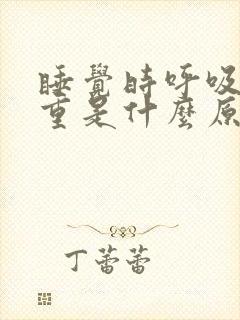 睡覺時呼吸
重是什麼原
丁蕾蕾